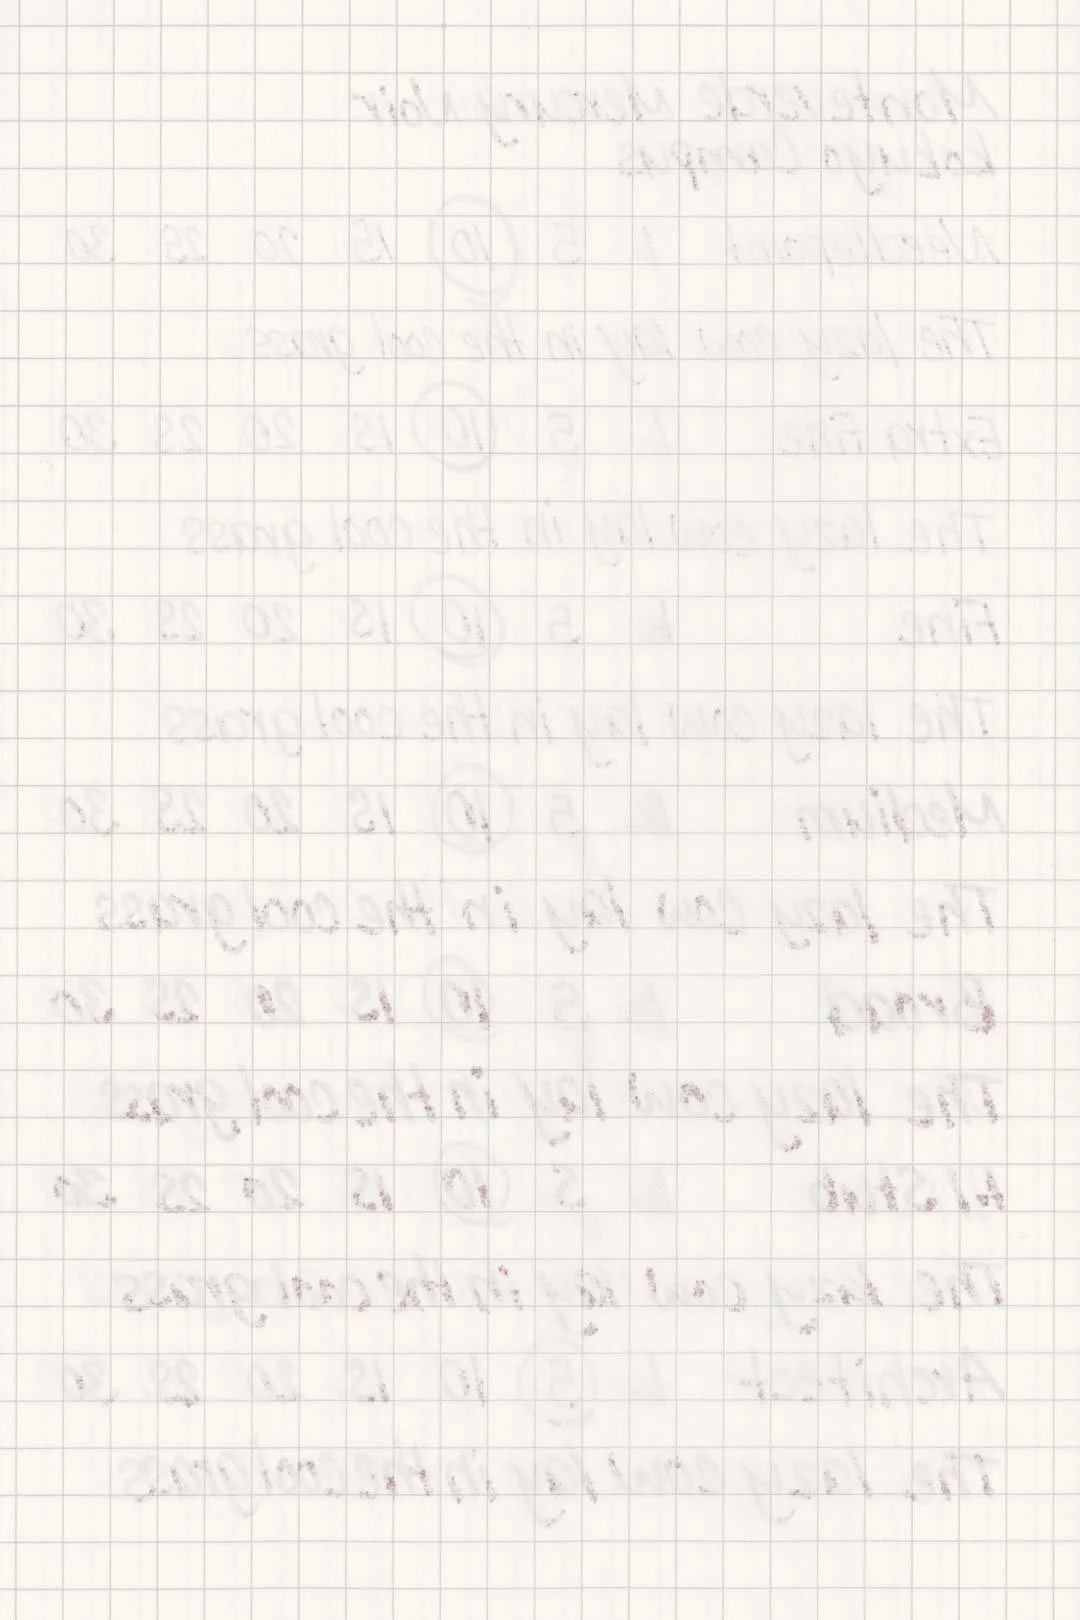 Monteverde Mercury Noir
Kokuyo Campus
Needlepoint 1 5 10 15 20 25 30
The lazy cow lay in the cool grass
Extra Fine 1 5 10 15 20 25 30
The lazy cow lay in the cool grass
Fine 1 5 10 15 20 25 30
The lazy cow lay in the cool grass
Medium 1 5 10 15 20 25 30
The lazy cow lay in the cool grass
Broad 1 5 10 15 20 25 30
The lazy cow lay in the cool grass
1.1 Stub 1 5 10 15 20 25 30
The lazy cow lay in the cool grass
Architect 1 5 10 15 20 25 30
The lazy cow lay in the cool grass